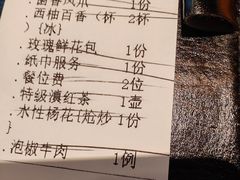 .西柚百香（杯 2杯
）{冰}
.玫瑰鲜花包 1份
.纸巾服务 1份
.餐位费 2位
.特级滇红茶 1壶
.水性杨花{炝炒 1份
}
.泡椒牛肉 1例